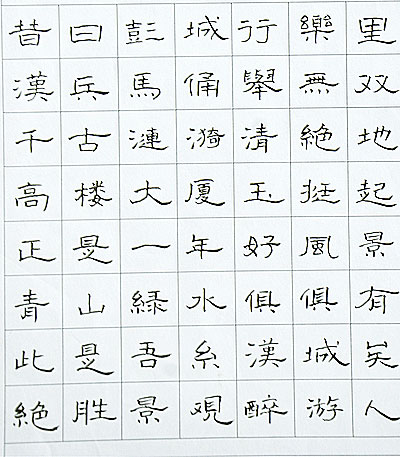 昔曰彭城行樂里
漢兵馬俑舉無双
千古漣漪清絶地
高楼大厦玉挺起
正是一年好風景
青山緑水俱俱有
此是吾糸漢城矣
絶胜景覌醉游人